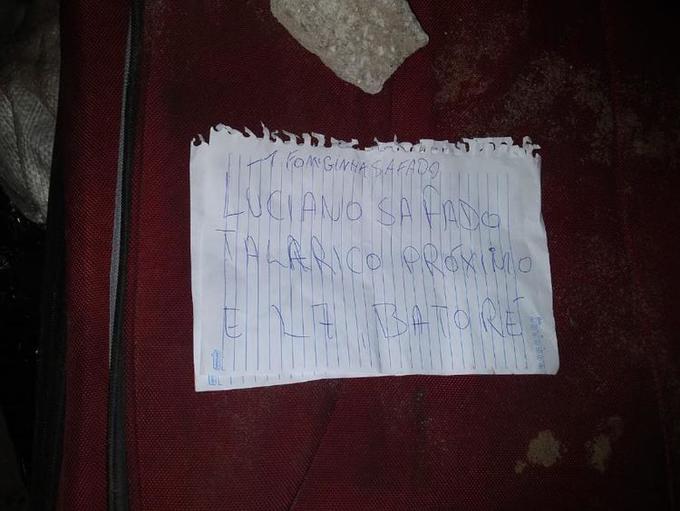 FOMIGINHA SAFADO
LUCIANO SAFADO
TALARICO PRÓXIMO
E L7 BATORÉ